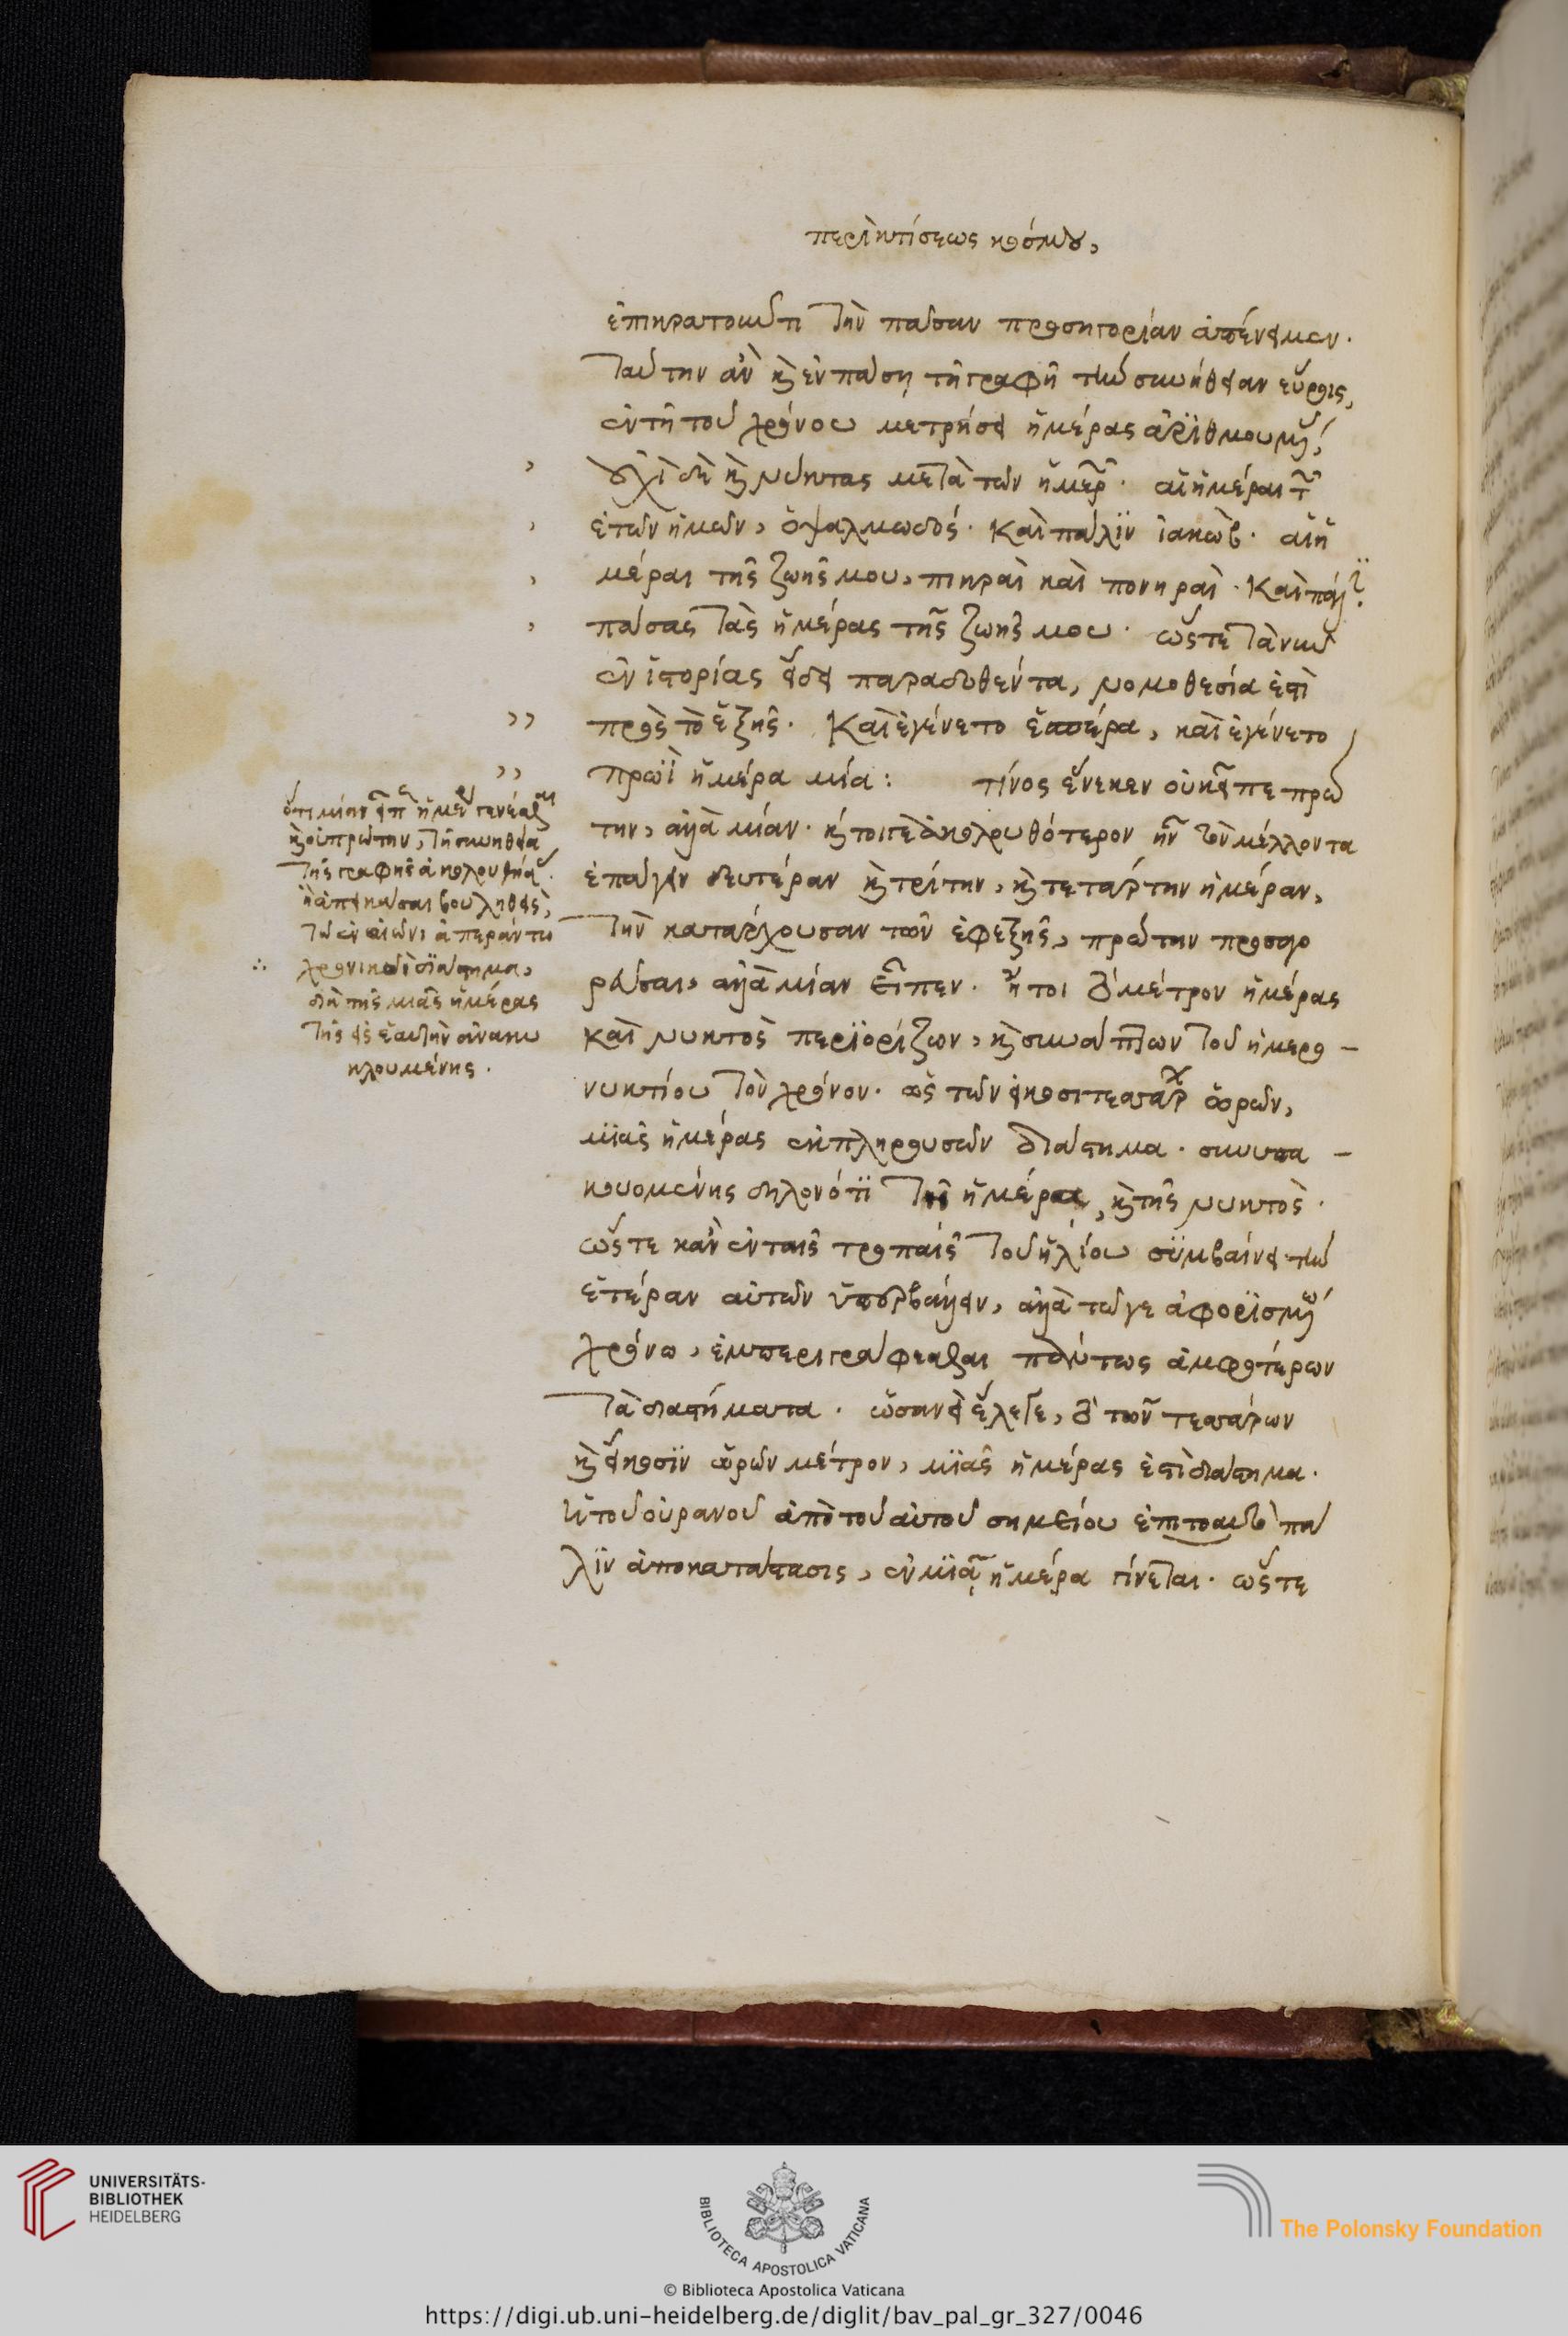 περὶ κτίσεως κόσμου,
ἐπικρατοῦντι τὴν πᾶσαν προσηγορίαν ἀπένειμεν.
Ταύτην ἂν κ(αὶ) ἐν πάση τῆ γραφῆ τὴν συνήθειαν εὕροις,
ἐν τῆ τοῦ χρόνου μετρήσει ἡμέρας ἀρϊθμουμ(έν)ας
οὐχὶ δὲ κ(αὶ) νύκτας μετὰ τῶν ἡμερ(ῶν)· αἱ ἡμέραι τ(ῶν)
ἐτῶν ἡμῶν, ὁ ψαλμωδός· Καὶ πάλϊν ἰακὼβ· αἱ ἡ
μέραι τῆς ζωῆς μου, πικραὶ καὶ πονηραὶ· Καὶ πάλϊ(ν)
πάσας τὰς ἡμέρας τῆς ζωῆς μου· ὥστε τὰ νῦν
ἐν ἱστορίας εἴδει παραδοθέντα, νομοθεσία ἐστὶ
πρὸς τὸ ἑξῆς· Καὶ ἐγένετο ἑσπέρα, καὶ ἐγένετο
πρωῒ ἡμέρα μία: τίνος ἕνεκεν οὐκ εἶπε πρώ
την, ἀλλὰ μίαν· κ(αί)τοιγε ἀκολουθότερον ἦν τὸν μέλλοντα
ἐπάγειν δευτέραν κ(αὶ) τρίτην, κ(αὶ) τετάρτην ἡμέραν,
τὴν κατάρχουσαν τῶν ἐφεξῆς, πρώτην προσαγο
ρεῦσαι, ἀλλὰ μίαν εἶπεν· ἤτοι τὸ μέτρον ἡμέρας
καὶ νυκτὸς περϊορίζων, κ(αὶ) συνάπτων τοῦ ἡμερο -
νυκτίου τὸν χρόνον· ὡς τῶν εἰκοσιτεσσάρ(ων) ὡρῶν,
μϊᾶς ἡμέρας ἐκπληρουσῶν διάστημα· συνυπα -
κουομένης δηλονότϊ τῆ ἡμέρα, κ(αὶ) τῆς νυκτὸς·
ὥστε κἂν ἐν ταῖς τροπαῖς τοῦ ἡλίου σϋμβαίνει τὴν
ἑτέραν αὐτῶν ὑπερβάλλειν, ἀλλὰ τῶ γε ἀφορϊσμ(έν)ω
χρόνω, ἐμπεριγράφεσθαι πάντως ἀμφοτέρων
τὰ διαστήματα· ὡσανεὶ ἔλεγε, τὸ τῶν τεσσάρων
κ(αὶ) εἴκοσϊν ὡρῶν μέτρον, μϊᾶς ἡμέρας ἐστὶ διάστημα·
ἡ τοῦ οὐρανοῦ ἀπὸ τοῦ αὐτοῦ σημείου ἐπιτοαυτὸ πά
λϊν ἀποκατάστασις, ἐν μϊᾷ ἡμέρα γίνεται· ὥστε
ὅτι μίαν εἶπ(εν) ἡμέρ(αν) γενέσθαι
κ(αὶ) οὐ πρώτην, τῆ συνηθεία
τῆς γραφῆς ἀκολουθήσας·
ἢ ἀπεικάσαι βουληθεὶς,
τῶ ἐν αἰῶνι ἀπεράντω
χρονικῶ δϊάστημα,
διὰ τῆς μιᾶς ἡμέρας
τῆς εἰς ἑαυτὴν ἀνακυ
κλουμένης·
UNIVERSITÄTS-
BIBLIOTHEK
HEIDELBERG
BIBLIOTECA APOSTOLICA VATICANA
The Polonsky Foundation
© Biblioteca Apostolica Vaticana
https://digi.ub.uni-heidelberg.de/diglit/bav_pal_gr_327/0046